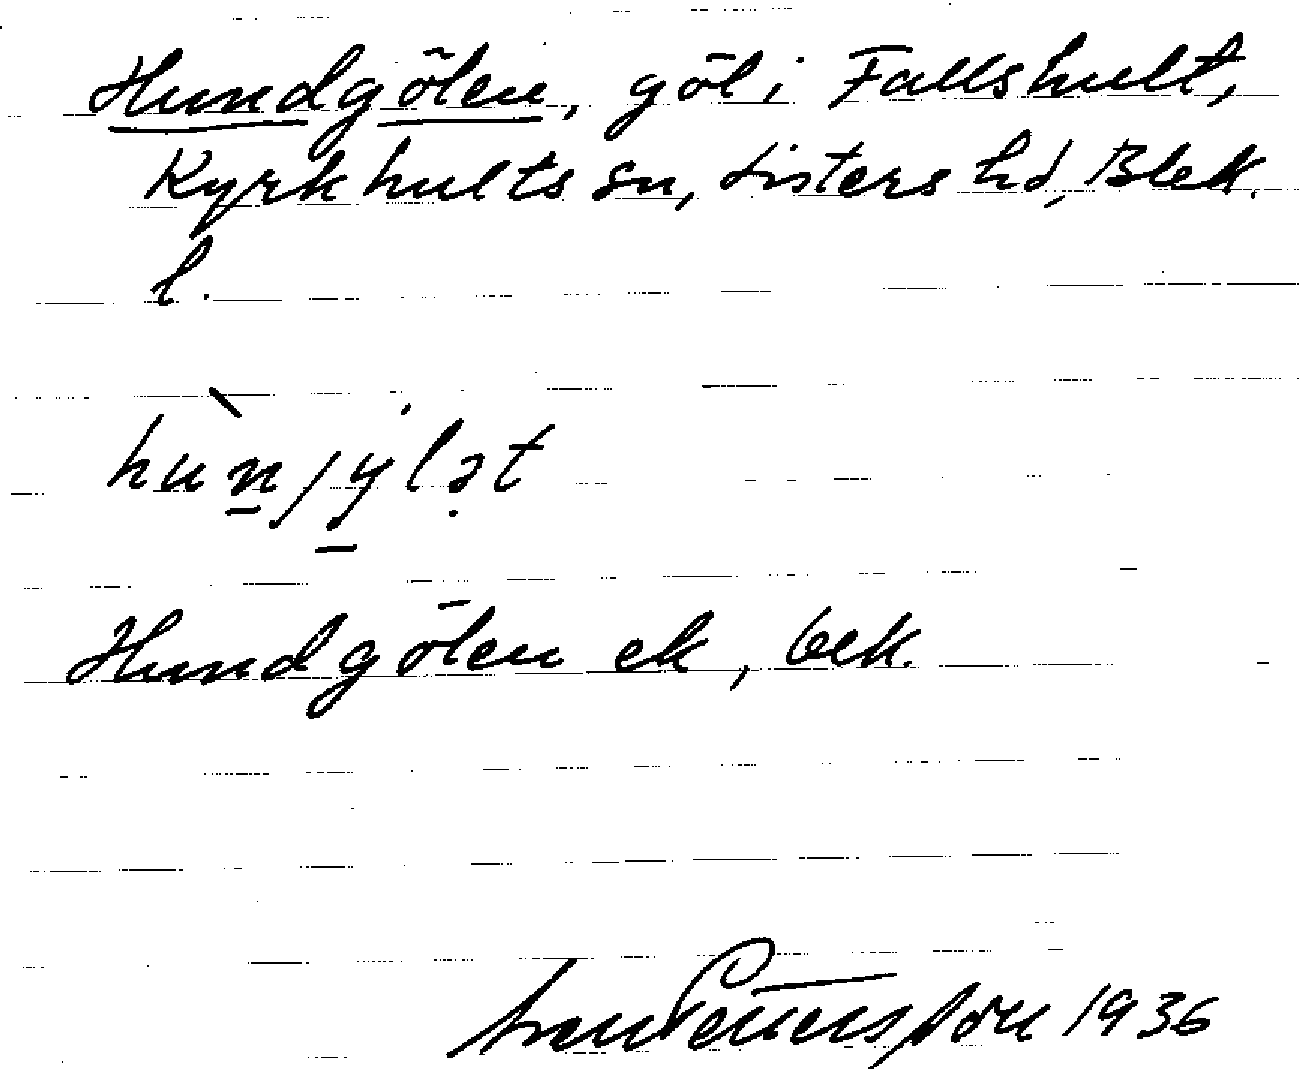 Hundgölen, göl i Fallshult,
Kyrkhults sn, Listers hd, Blek.
l.
hùnjylət
Hundgölen ek, bek.
Pettersson 1936